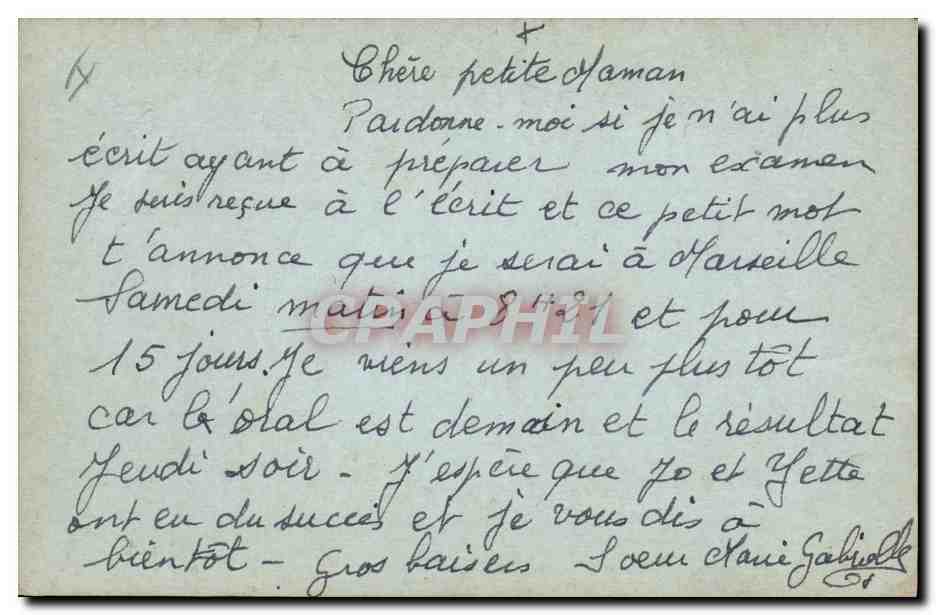 +
Chère petite Maman
Pardonne-moi si je n'ai plus
écrit ayant à préparer mon examen
Je suis reçue à l'écrit et ce petit mot
t'annonce que je serai à Marseille
Samedi matin à 8 H 21 et pour
CPAPHIL
15 jours. Je viens un peu plus tôt
car l'oral est demain et le résultat
Jeudi soir - J'espère que Jo et Yette
ont eu du succès et je vous dis à
bientôt - Gros baisers Soeur Marie Gabrielle